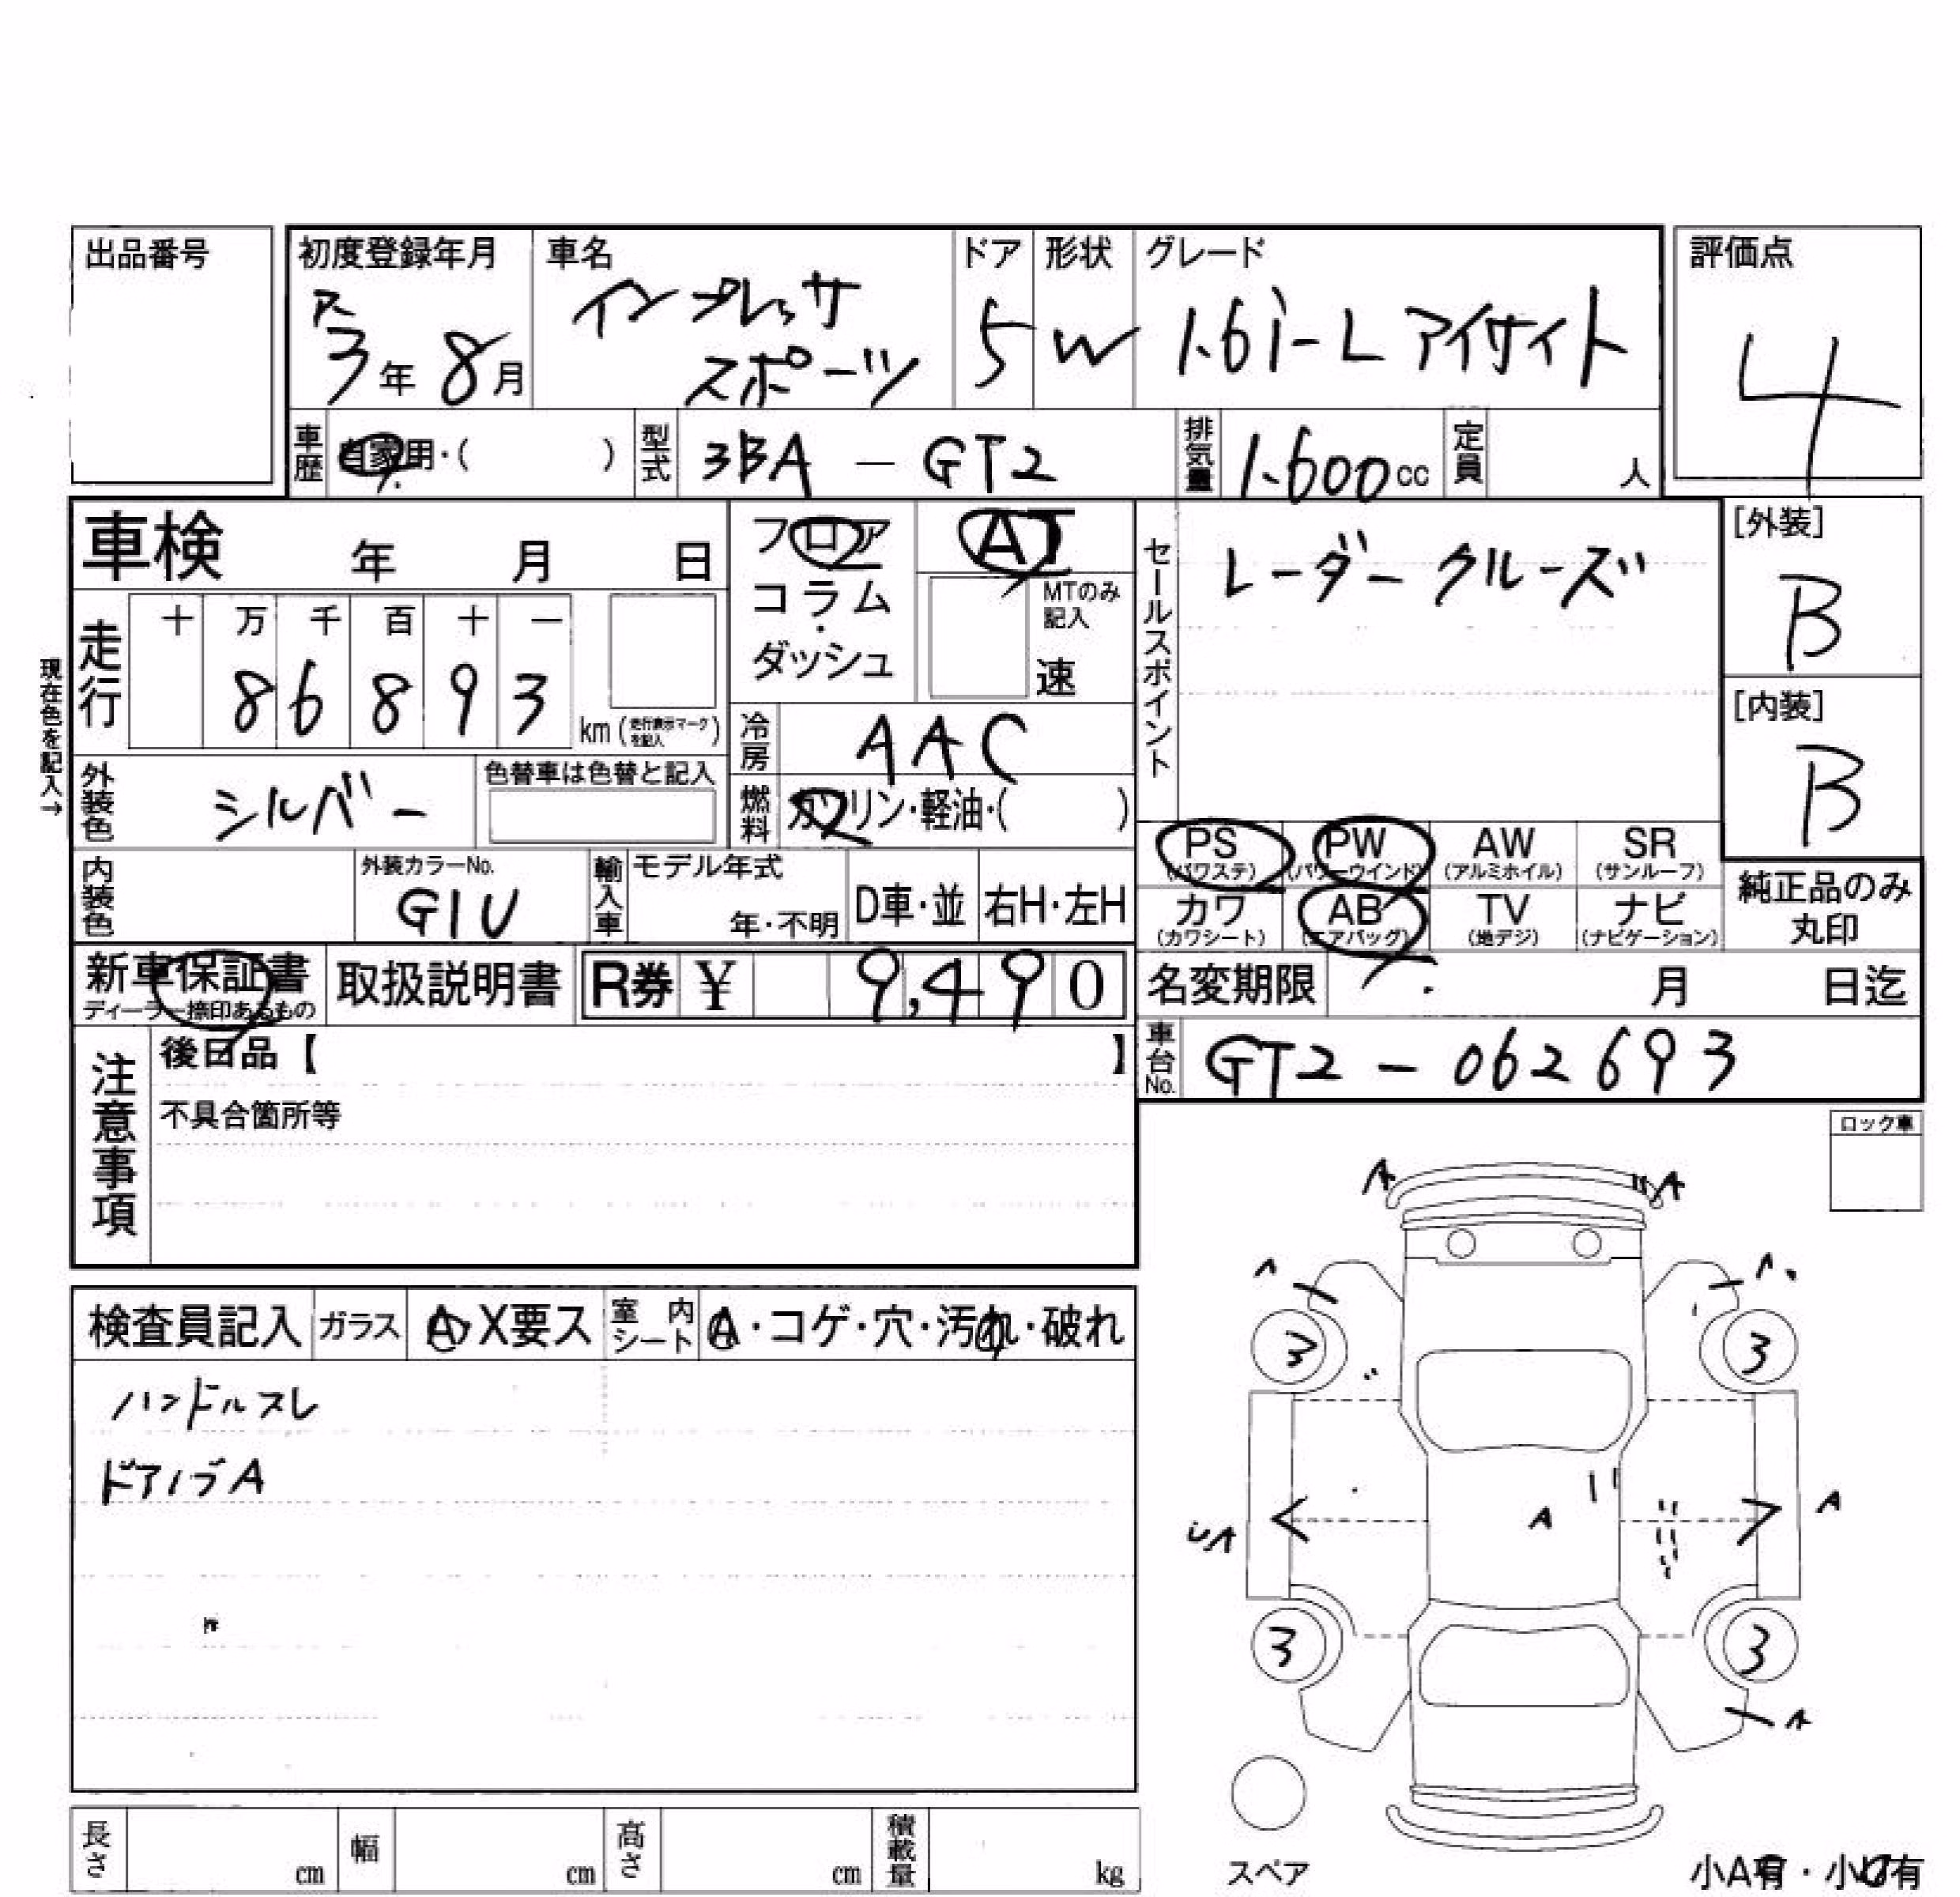 出品番号
初度登録年月 車名 ドア 形状 グレード 評価点
R3年 8月 インプレッサ スポーツ 5 W 1.6i-L アイサイト 4
車歴 自家用・( ) 型式 3BA - GT2 排気量 1.600cc 定員 人
車検 年 月 日
フロア AT
コラム・ MTのみ記入
ダッシュ 速
セールスポイント レーダークルーズ
[外装] B
[内装] B
走行 十 万 千 百 十 一
8 6 8 9 3 km (走行表示マークを記入)
現在色を記入→
冷房 AAC
外装色 シルバー 色替車は色替と記入
燃料 ガソリン・軽油・( )
PS (パワステ) PW (パワーウインド) AW (アルミホイル) SR (サンルーフ)
カワ (カワシート) AB (エアバッグ) TV (地デジ) ナビ (ナビゲーション)
純正品のみ丸印
内装色 外装カラーNo. G1U 輸入車 モデル年式 年・不明 D車・並 右H・左H
新車保証書 ディーラー捺印あるもの 取扱説明書 R券 ¥ 9,490
名変期限 月 日迄
車台No. GT2 - 062693
注意事項 後日品【 】
不具合箇所等
ロック車
検査員記入 ガラス A・X要ス 室内シート A・コゲ・穴・汚れ・破れ
ハンドルスレ
ドアノブA
A A
3 3
A A
3 3
A
スペア
小A有・小U有
長さ cm 幅 cm 高さ cm 積載量 kg